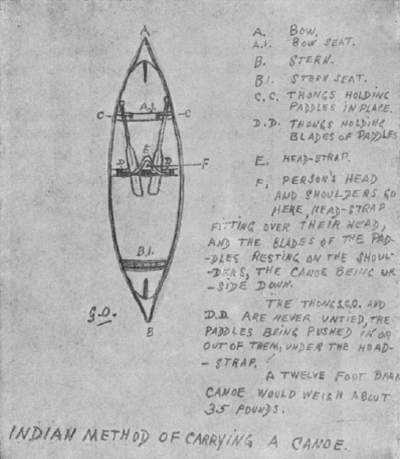 A
A. BOW.
A.1. BOW SEAT.
B. STERN.
B.1. STERN SEAT.
C.C. THONGS HOLDING
PADDLES IN PLACE.
D.D. THONGS HOLDING
BLADES OF PADDLES
E. HEAD-STRAP.
F. PERSON'S HEAD
AND SHOULDERS GO
HERE, HEAD-STRAP
FITTING OVER THEIR HEAD,
AND THE BLADES OF THE PAD-
-DLES RESTING ON THE SHOUL-
-DERS, THE CANOE BEING UP-
-SIDE DOWN.
THE THONGS C.C. AND
D.D. ARE NEVER UNTIED, THE
PADDLES BEING PUSHED IN OR
OUT OF THEM, UNDER THE HEAD-
-STRAP.
A TWELVE FOOT BARK
CANOE WOULD WEIGH ABOUT
35 POUNDS.
C A.1. C
E
D D F
B.1.
G.O.
B
INDIAN METHOD OF CARRYING A CANOE.